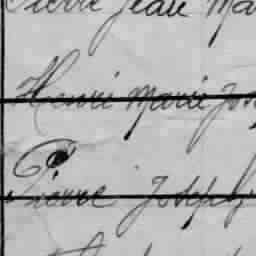 Pierre Jean Ma
Henri Marie Jos
Pierre Joseph